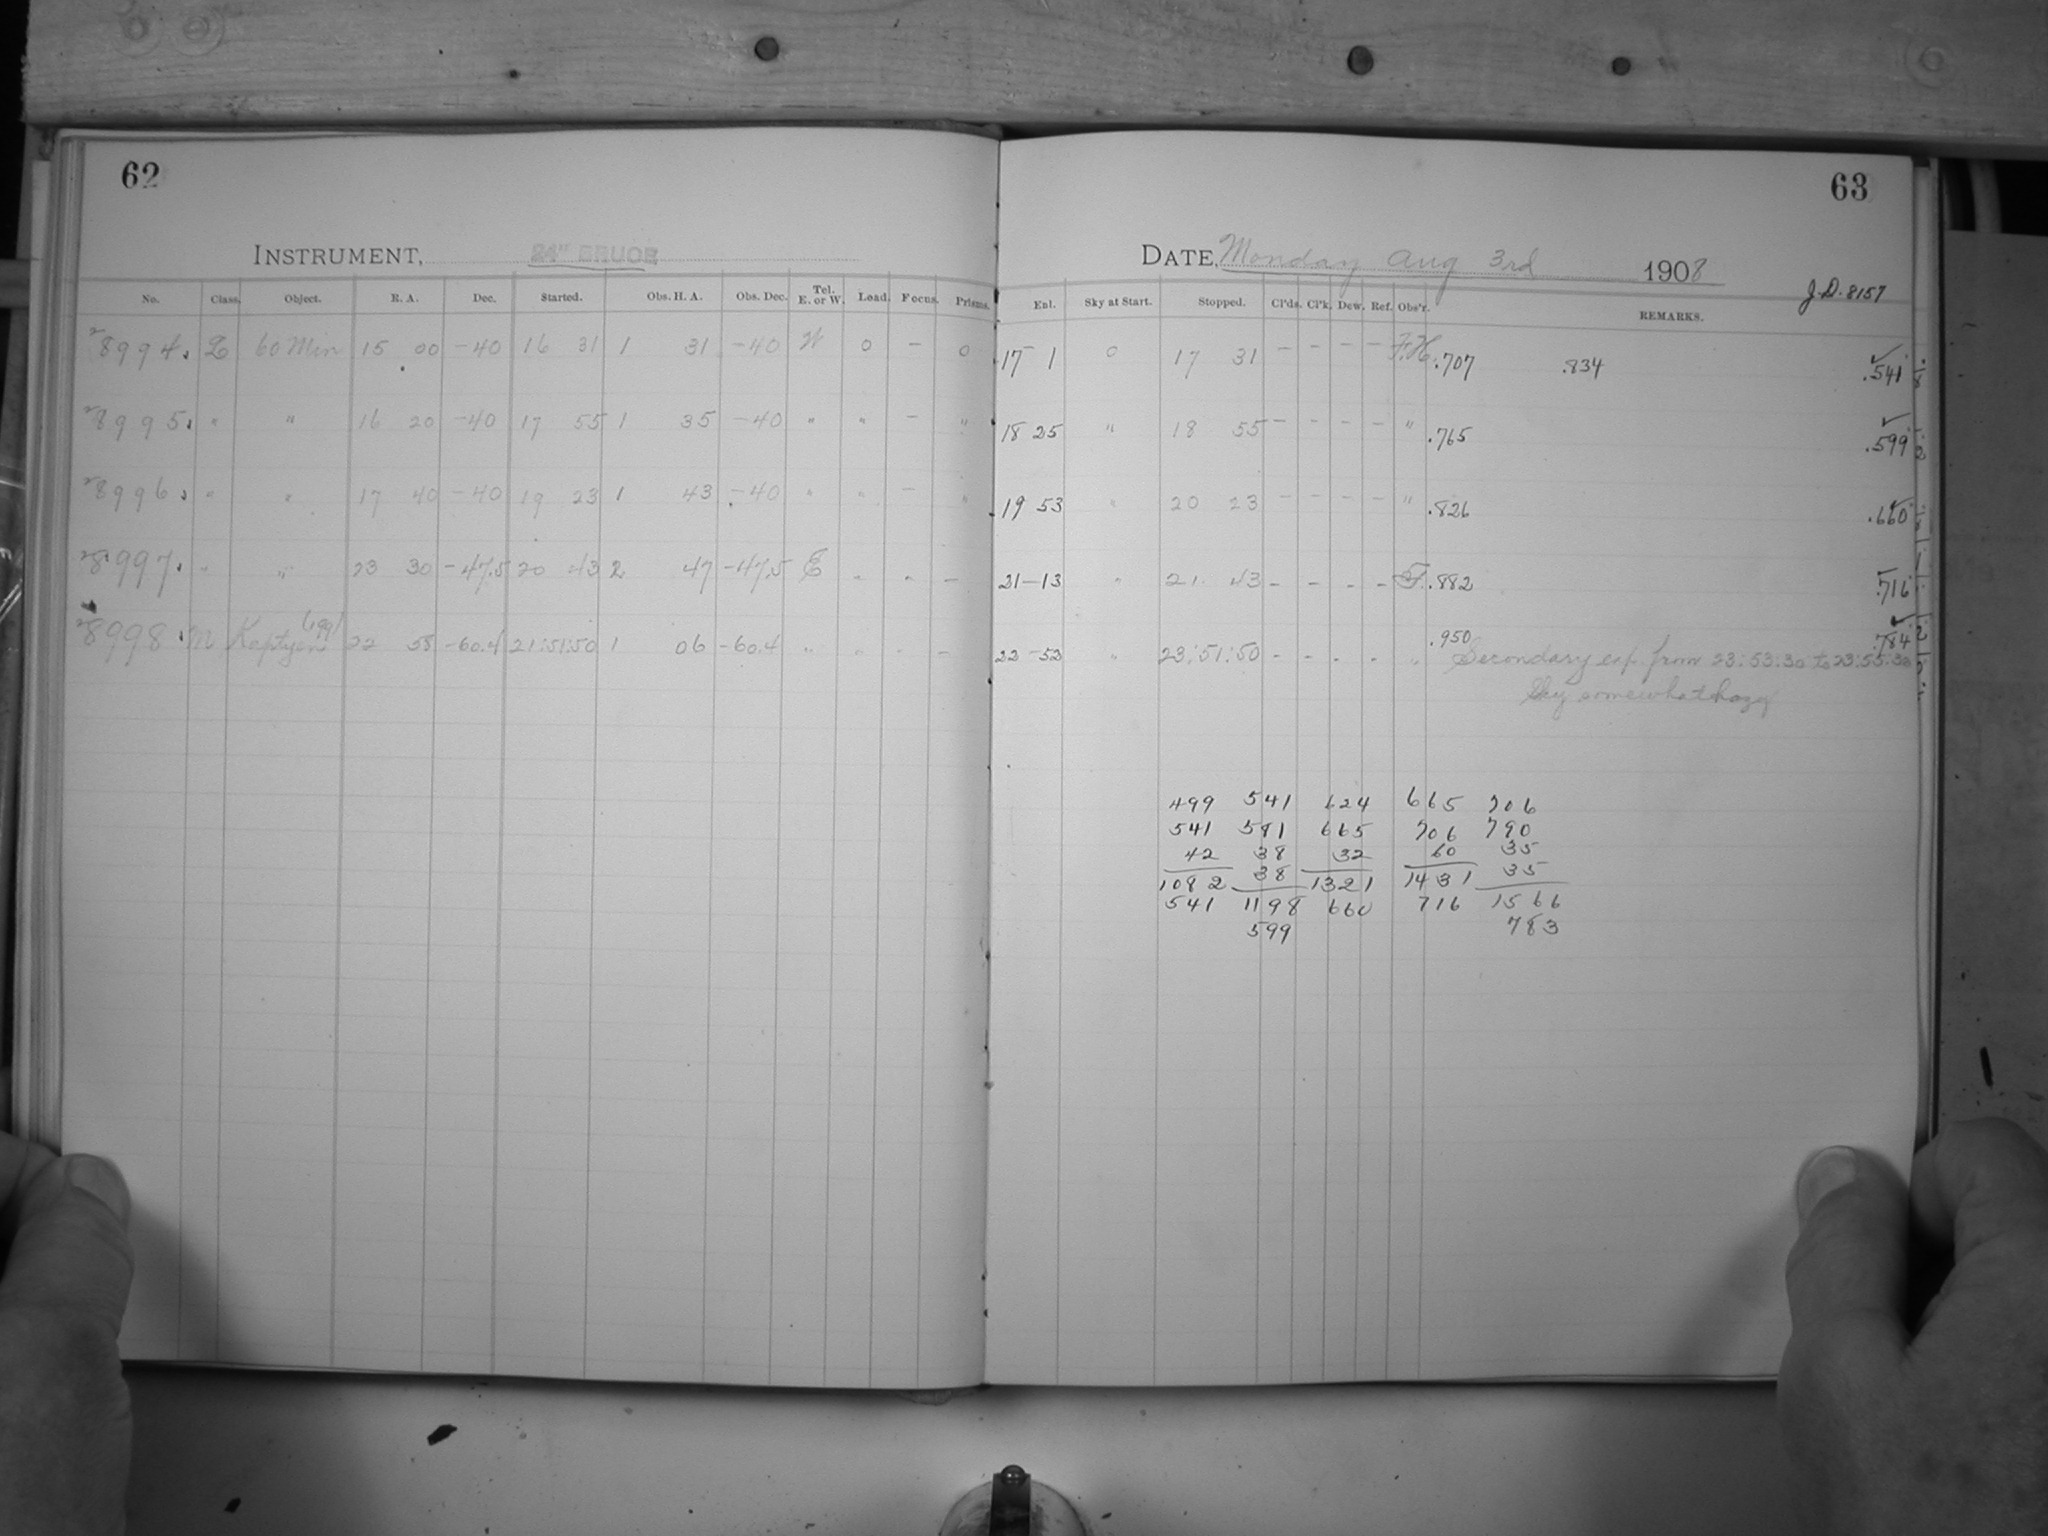 62
INSTRUMENT, 24" BRUCE
No. Class. Object. R. A. Dec. Started. Obs. H. A. Obs. Dec. Tel. E. or W. Load. Focus. Prisms.
28994. L 60 Min 15 00 -40 16 31 1 31 -40 W 0 - 0
28995. " " 16 20 -40 17 55 1 35 -40 " " - "
28996. " " 17 40 -40 19 23 1 43 -40 " " - "
28997. " " 23 30 -47.5 20 43 2 47 -47.5 E " " -
28998. M Kapteyn 22 58 -60.4 21:51:50 1 06 -60.4 " " - -
63
DATE, Monday Aug 3rd 1908
J.D. 8157
Enl. Sky at Start. Stopped. Cl'ds. Cl'k. Dew. Ref. Obs'r. REMARKS.
17 1 0 17 31 - - - - F.H. .707 .834 .541
18 25 " 18 55 - - - - " .765 .599
19 53 " 20 23 - - - - " .826 .660
21-13 " 21 43 - - - - F. .882 .716
22-52 " 23:51:50 - - - - " .950 .784
Secondary exp. from 23:53:30 to 23:55:30
Sky somewhat hazy
499 541 624 665 706
541 581 665 706 790
42 38 32 60 35
1082 38 1321 1431 35
541 1198 660 716 1566
599 783